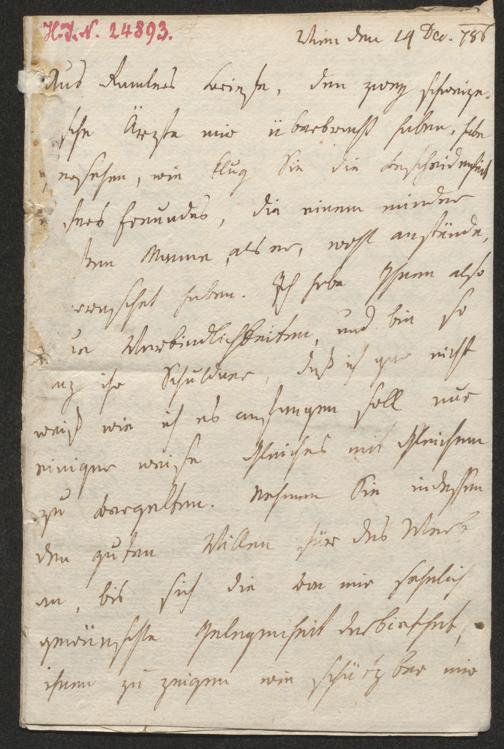 H.I.N. 24893.
Wien den 19 Dec. 786
Aus Ramlers Briefe, den zwey schweize-
sche Ärzte mir überbracht haben, habe
ersehen, wie klug Sie die Bescheidenheit
hers Freundes, die einem minder
ten Manne, als er, wohl anstünde,
errascht haben. Ich habe Ihnen also
ue Verbindlichkeiten, und bin so
nz ihr Schuldner, daß ich gar nicht
weiß wie ich es anfangen soll nur
einiger weise Gleiches mit Gleichem
zu vergelten. Nehmen Sie indessen
den guten Willen für das Werk
an, bis sich die von mir sehnlich
gewünschte Gelegenheit darbiethet,
ihnen zu zeigen wie schätzbar mir